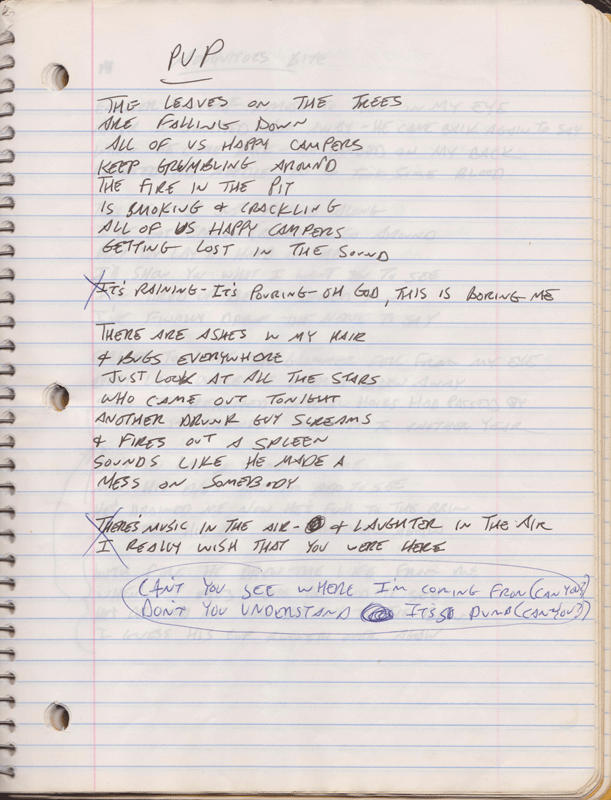 PUP
THE LEAVES ON THE TREES
ARE FALLING DOWN
ALL OF US HAPPY CAMPERS
KEEP GRUMBLING AROUND
THE FIRE IN THE PIT
IS SMOKING & CRACKLING
ALL OF US HAPPY CAMPERS
GETTING LOST IN THE SOUND
IT'S RAINING - IT'S POURING - OH GOD, THIS IS BORING ME
THERE ARE ASHES IN MY HAIR
& BUGS EVERYWHERE
JUST LOOK AT ALL THE STARS
WHO CAME OUT TONIGHT
ANOTHER DRUNK GUY SCREAMS
& FIRES OUT A SPLEEN
SOUNDS LIKE HE MADE A
MESS ON SOMEBODY
THERE'S MUSIC IN THE AIR - & LAUGHTER IN THE AIR
I REALLY WISH THAT YOU WERE HERE
CAN'T YOU SEE WHERE I'M COMING FROM (CAN YOU?)
DON'T YOU UNDERSTAND IT'S SO DUMB (CAN YOU?)